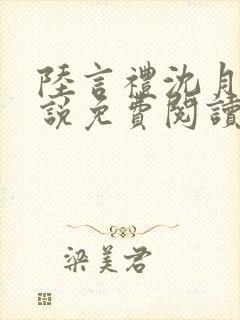 陸言禮沈月
說免費閱讀
梁美君